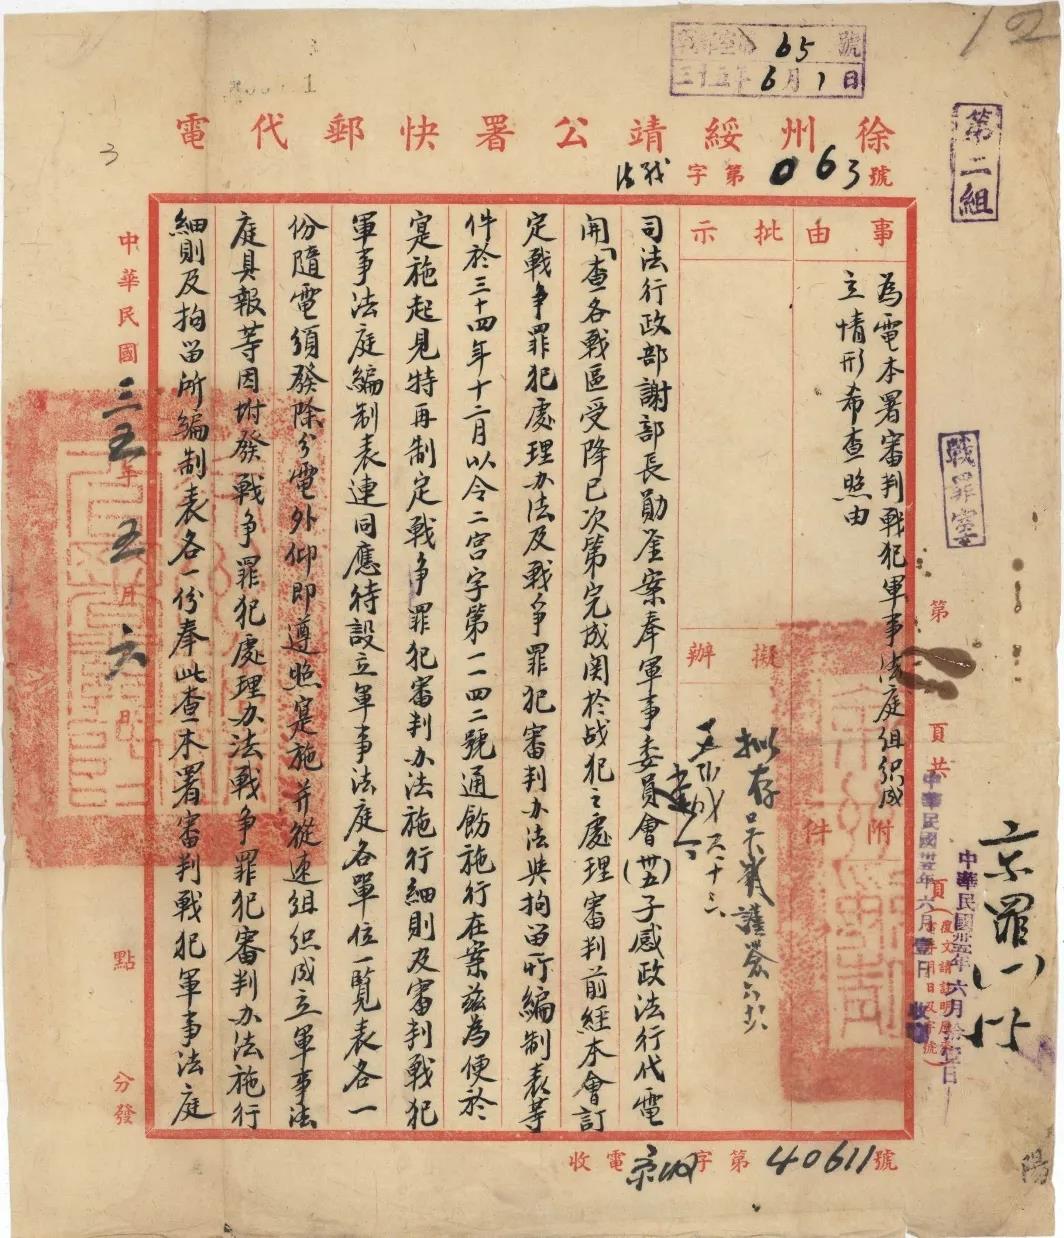 65號
三十五年6月1日
第二組
徐州綏靖公署快郵代電
法戰字第063號
事由
為電本署審判戰犯軍事法庭組織成
立情形希查照由
附件
批示
擬辦
擬存
司法行政部謝部長勛鉴案奉軍事委員會(卅五)子感政法行代電
開「查各戰區受降已次第完成関於战犯之處理審判前經本會訂
定戰争罪犯處理办法及戰争罪犯審判办法與拘留所編制表等
件於三十四年十二月以令二宫字第一一四二號通飭施行在案兹為便於
寔施起見特再制定戰争罪犯審判办法施行細則及審判戰犯
軍事法庭編制表連同應待設立軍事法庭各單位一覧表各一
份隨電须發除分電外仰即遵照寔施并從速組织成立軍事法
庭具報等因坿發戰争罪犯處理办法戰争罪犯審判办法施行
細則及拘留所編制表各一份奉此查一本署審判戰犯軍事法庭
中華民國三五年五月六日
點
分發
戰罪室
第
頁共
頁
中華民國卅五年六月壹日
收
中華民國卅五年六月
京罪(一)
收電京字第40611號
陽